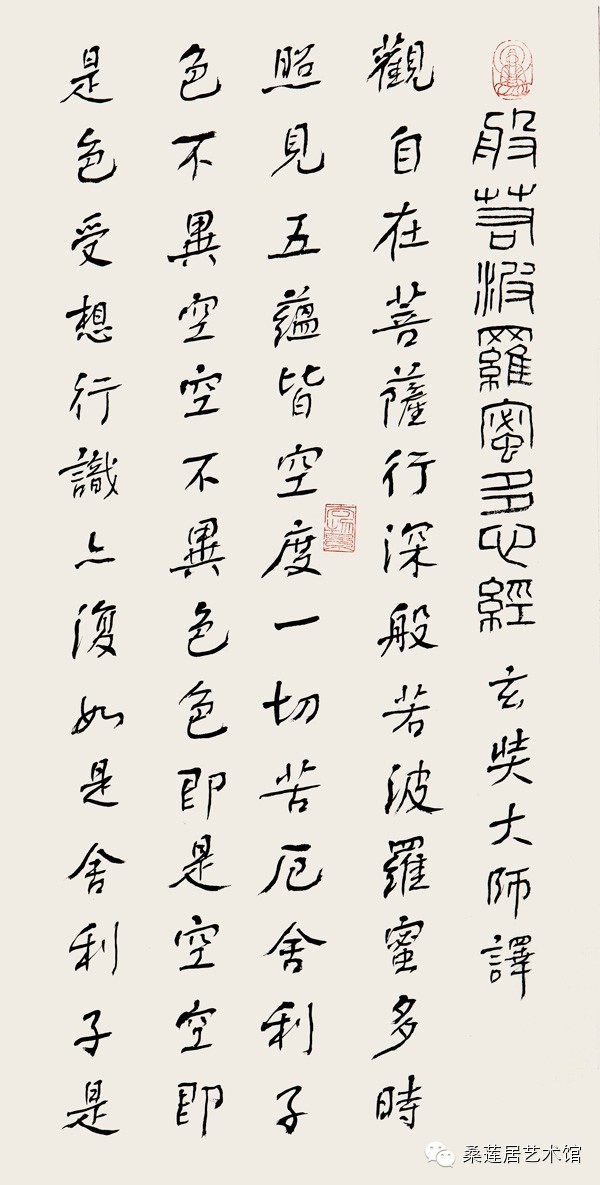 般若波羅蜜多心經 玄奘大師譯
觀自在菩薩行深般若波羅蜜多時
照見五蘊皆空度一切苦厄舍利子
色不異空空不異色色即是空空即
是色受想行識亦復如是舍利子是
桑莲居艺术馆